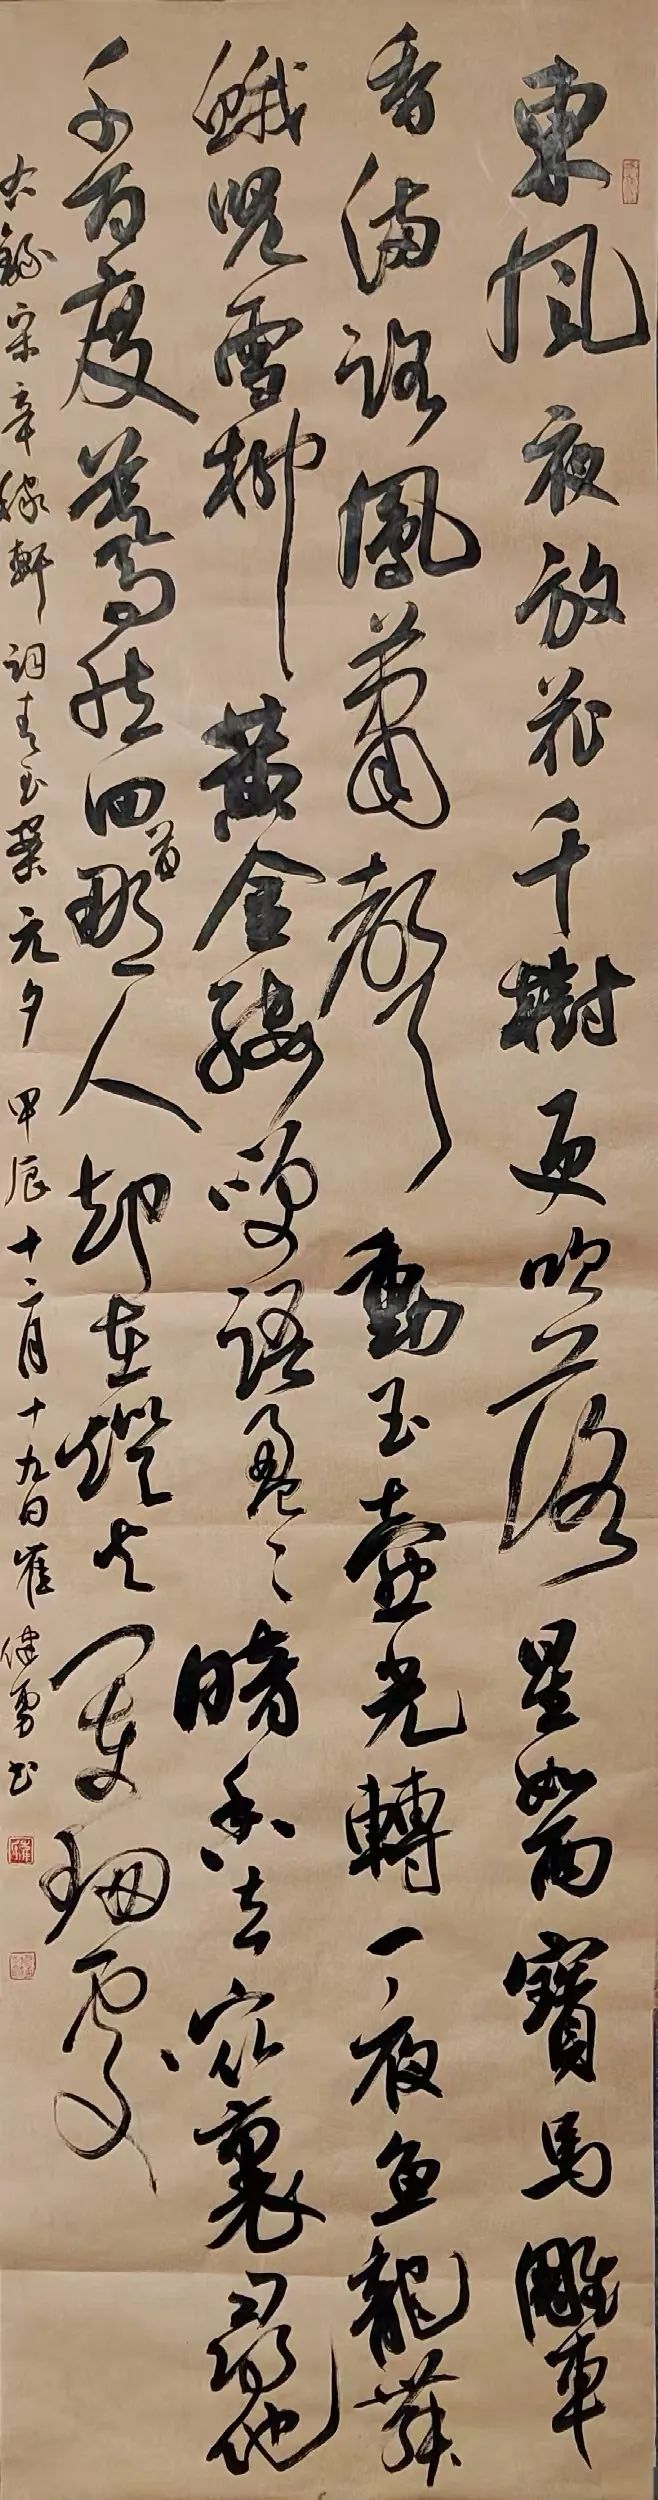 東風夜放花千樹更吹落星如雨寶馬雕車
香滿路鳳簫聲動玉壺光轉一夜魚龍舞
蛾兒雪柳黃金縷笑語盈〻暗香去眾裏尋他
千百度驀然回首那人卻在燈火闌珊處
右錄宋辛稼軒詞青玉案元夕 甲辰十二月十九日崔健勇書